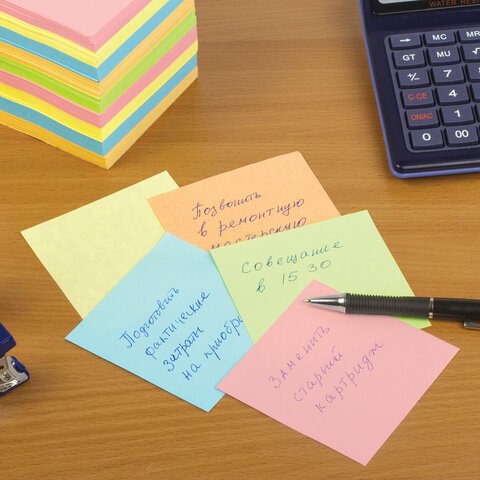 WATER RESIS
MC
MR
GT
%
7
8
C·CE
4
5
ON/AC
1
2
0
00
Позвонить
в ремонтную
мастерскую
Совещание
в 15 30
Подготовить
фактические
затраты
на приобр
Заменить
старый
картридж